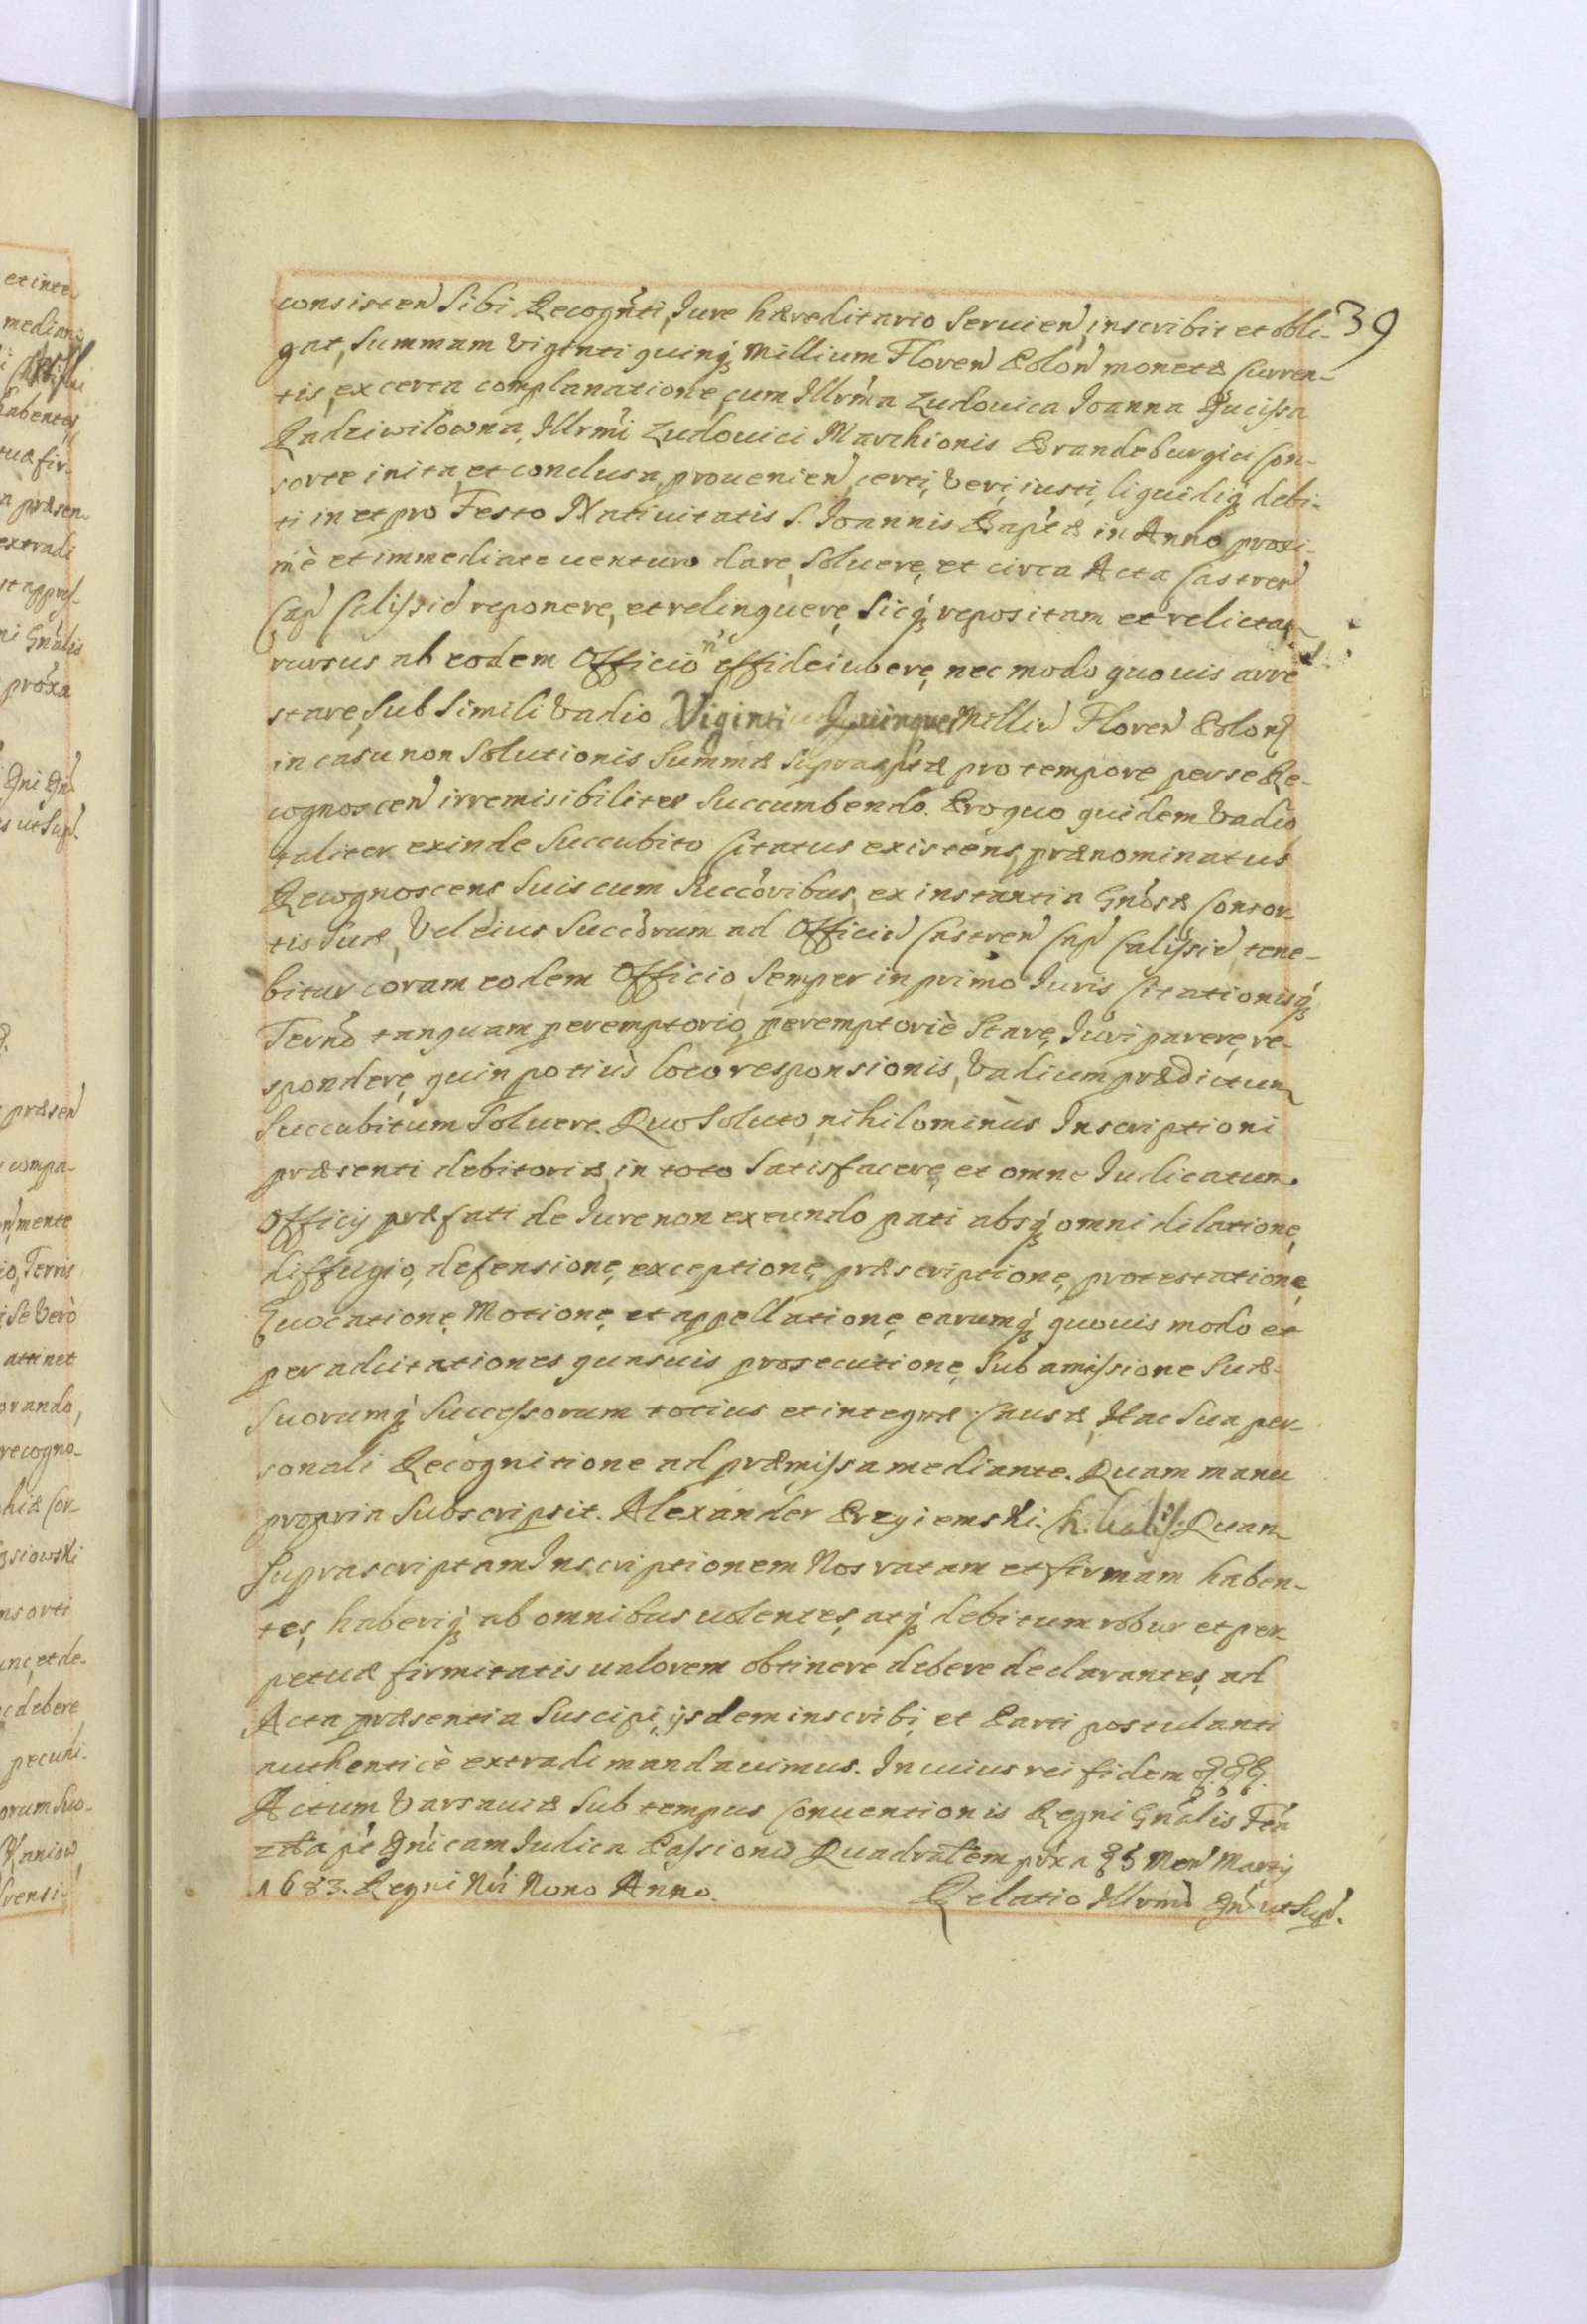 39
consisten Sibi Recogn̄ti, Jure hæreditario Seruien, inscribit et obli-
gat, Summam Viginti quinq; Millium Floren Polon monetæ Curren-
tis, ex certa complanatione, cum Illrm̄a Ludouica Joanna Ducissa
Radziwilowna, Illrm̄i Ludouici Marchionis Brandeburgici Con-
sorte inita, et conclusa, prouenien, certi, Veri, iusti, liquidiq; debi-
ti in et pro Festo Natiuitatis S. Joannis Bap̄tæ in Anno proxi-
mè et immediate venturo dare, Soluere, et circa Acta Castren
Cap Calissien reponere, et relinquere, Sicq; repositam et relictam,
rursus ab eodem Officio n̄ effideiubere, nec modo quouis arre
stare, Sub Simili Vadio Viginti Quinque Milliū Floren Polon
in casu non Solutionis Summæ Supraspctæ pro tempore per se Re-
cognoscen irremisibiliter Succumbendo. Pro quo quidem Vadio
taliter exinde Succubito Citatus existens, prænominatus
Recognoscens Suis cum Succōribus, ex instantia Gn̄osæ Consor-
tis Suæ, Vel eius Succōrum ad Officiū Castren Cap Calissien, tene-
bitur coram eodem Officio, Semper in primo Juris Citationisq;
Termō tanquam peremptorio, peremptoriè Stare, Juri parere, re-
spondere, quin potiùs loco responsionis, Vadium prædictum
Succubitum Soluere. Quo Soluto, nihilominus Inscriptioni
præsenti debitoriæ, in toto Satisfacere, et omne Judicatum
Officij præfati de Jure non exeundo pati absq; omni dilatione,
diffugio, defensione, exceptione, præscriptione, protestatione,
Euocatione, Motione, et appellatione, earumq; quouis modo et
per adcitationes quasuis prosecutione, Sub amissione Suæ
Suorumq; Successorum totius et integræ Causæ, Hac Sua per-
sonali Recognitione ad præmissa mediante. Quam manu
propria Subscripsit. Alexander Przyiemski. Quam
Suprascriptam Inscriptionem Nos ratam et firmam haben-
tes, haberiq; ab omnibus uolentes, atq; debitum robur et per-
petuæ firmitatis ualorem obtinere debere declarantes, ad
Acta præsentia Suscipi, ijsdem inscribi, et Parti postulanti
authenticè extradi mandauimus. In cuius rei fidem &&&.
Actum Varsauiæ Sub tempus Conuentionis Regni Gn̄alis Fer̄a
2da p̄t Dn̄icam Judica Passionis Quadrālem prox̄a Men Martij
1683. Regni Nri Nono Anno.
Relatio Illrm̄i Dn̄i ut Sup̄.